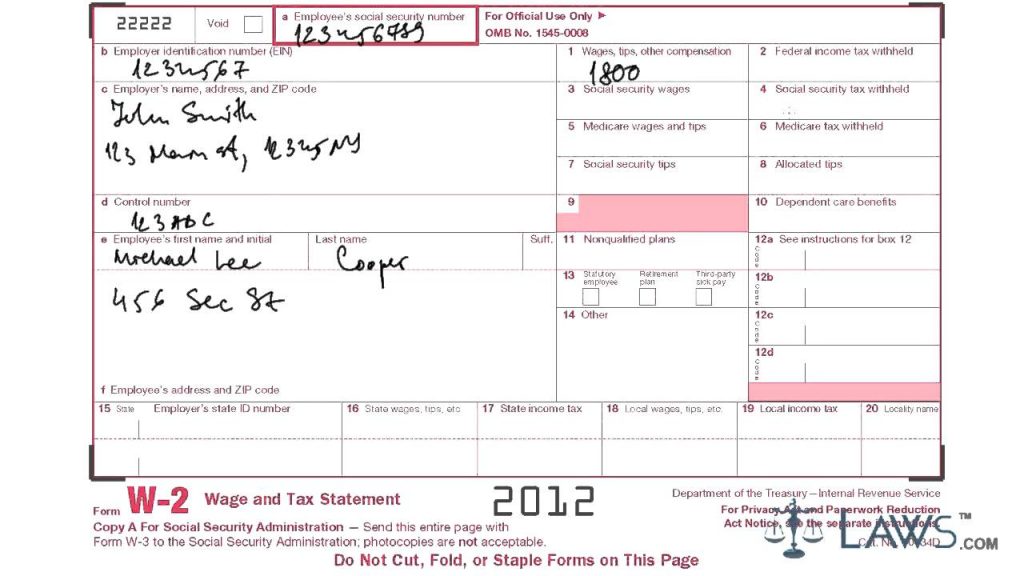 22222
Void
a Employee's social security number
123456789
For Official Use Only ►
OMB No. 1545-0008
b Employer identification number (EIN)
1234567
1 Wages, tips, other compensation
1800
2 Federal income tax withheld
c Employer's name, address, and ZIP code
John Smith
123 Main st, 12345 NY
3 Social security wages
4 Social security tax withheld
5 Medicare wages and tips
6 Medicare tax withheld
7 Social security tips
8 Allocated tips
d Control number
123 ABC
9
10 Dependent care benefits
e Employee's first name and initial
Last name
Suff.
Michael Lee
Cooper
456 Sec St
11 Nonqualified plans
12a See instructions for box 12
Code
13 Statutory employee
Retirement plan
Third-party sick pay
12b
Code
14 Other
12c
Code
12d
Code
f Employee's address and ZIP code
15 State Employer's state ID number
16 State wages, tips, etc.
17 State income tax
18 Local wages, tips, etc.
19 Local income tax
20 Locality name
Form W-2 Wage and Tax Statement
2012
Department of the Treasury—Internal Revenue Service
For Privacy Act and Paperwork Reduction
Act Notice, see the separate instructions.
Cat. No.
Copy A For Social Security Administration — Send this entire page with
Form W-3 to the Social Security Administration; photocopies are not acceptable.
Do Not Cut, Fold, or Staple Forms on This Page
LAWS.COM™